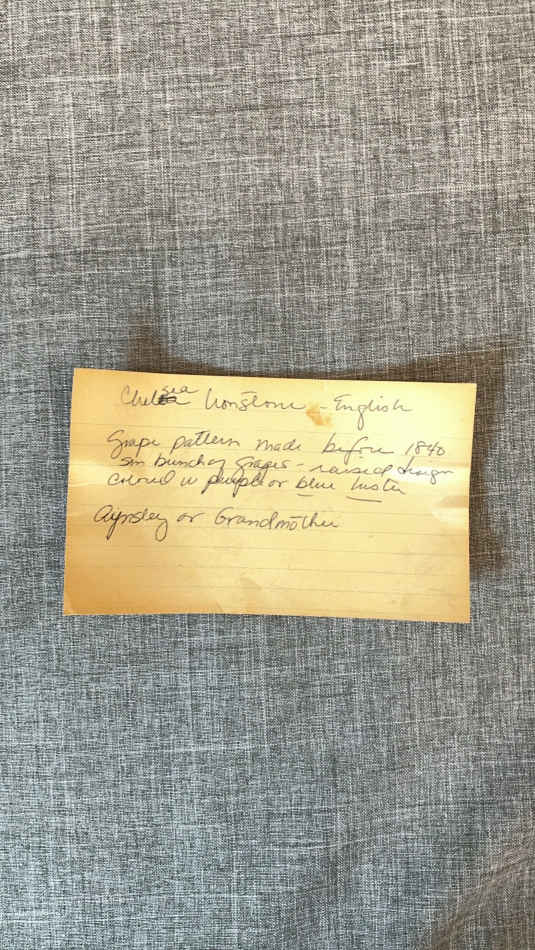 Chelsea Ironstone - English
Grape pattern made before 1840
sm bunch of grapes - raised design
colored w purple or blue luster
Aynsley or Grandmother